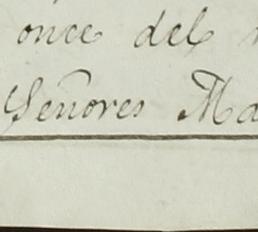 once del
Señores Ma